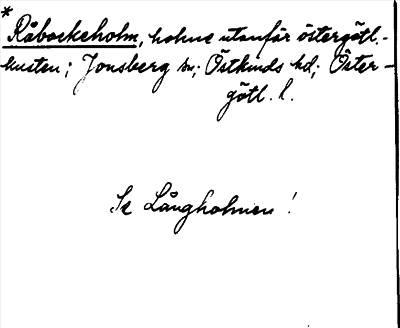 * Råbockeholm, holme utanför östergötl.-
kusten; Jonsberg sn; Östkinds hd; Öster-
götl. l.
Se Långholmen!